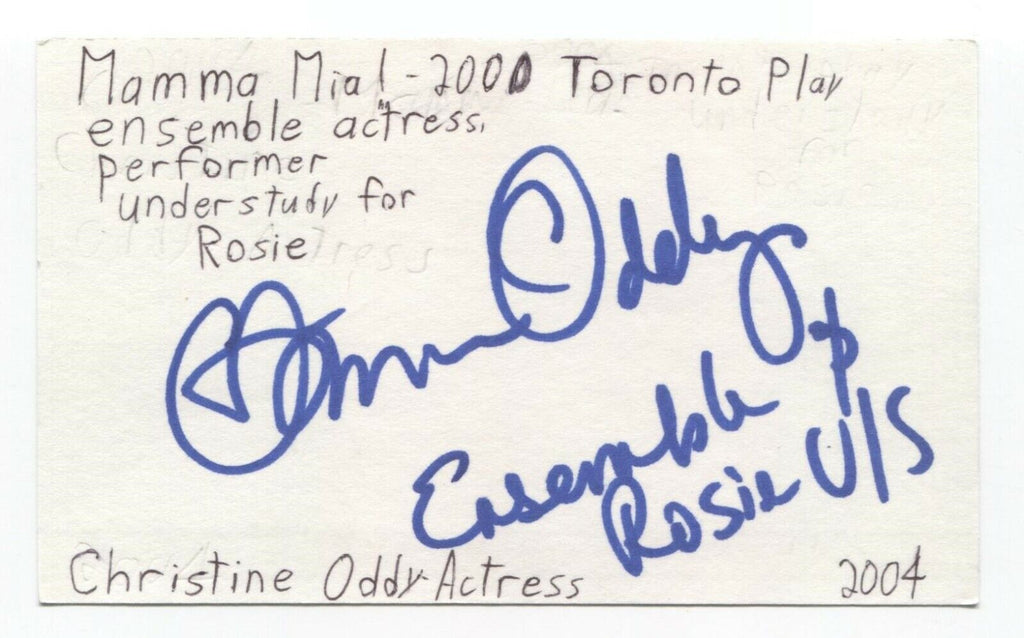 Mamma Mia! - 2000 Toronto Play
ensemble actress,
performer
understudy for
Rosie
Oddy
Ensemble &
Rosie U/S
Christine Oddy-Actress
2004